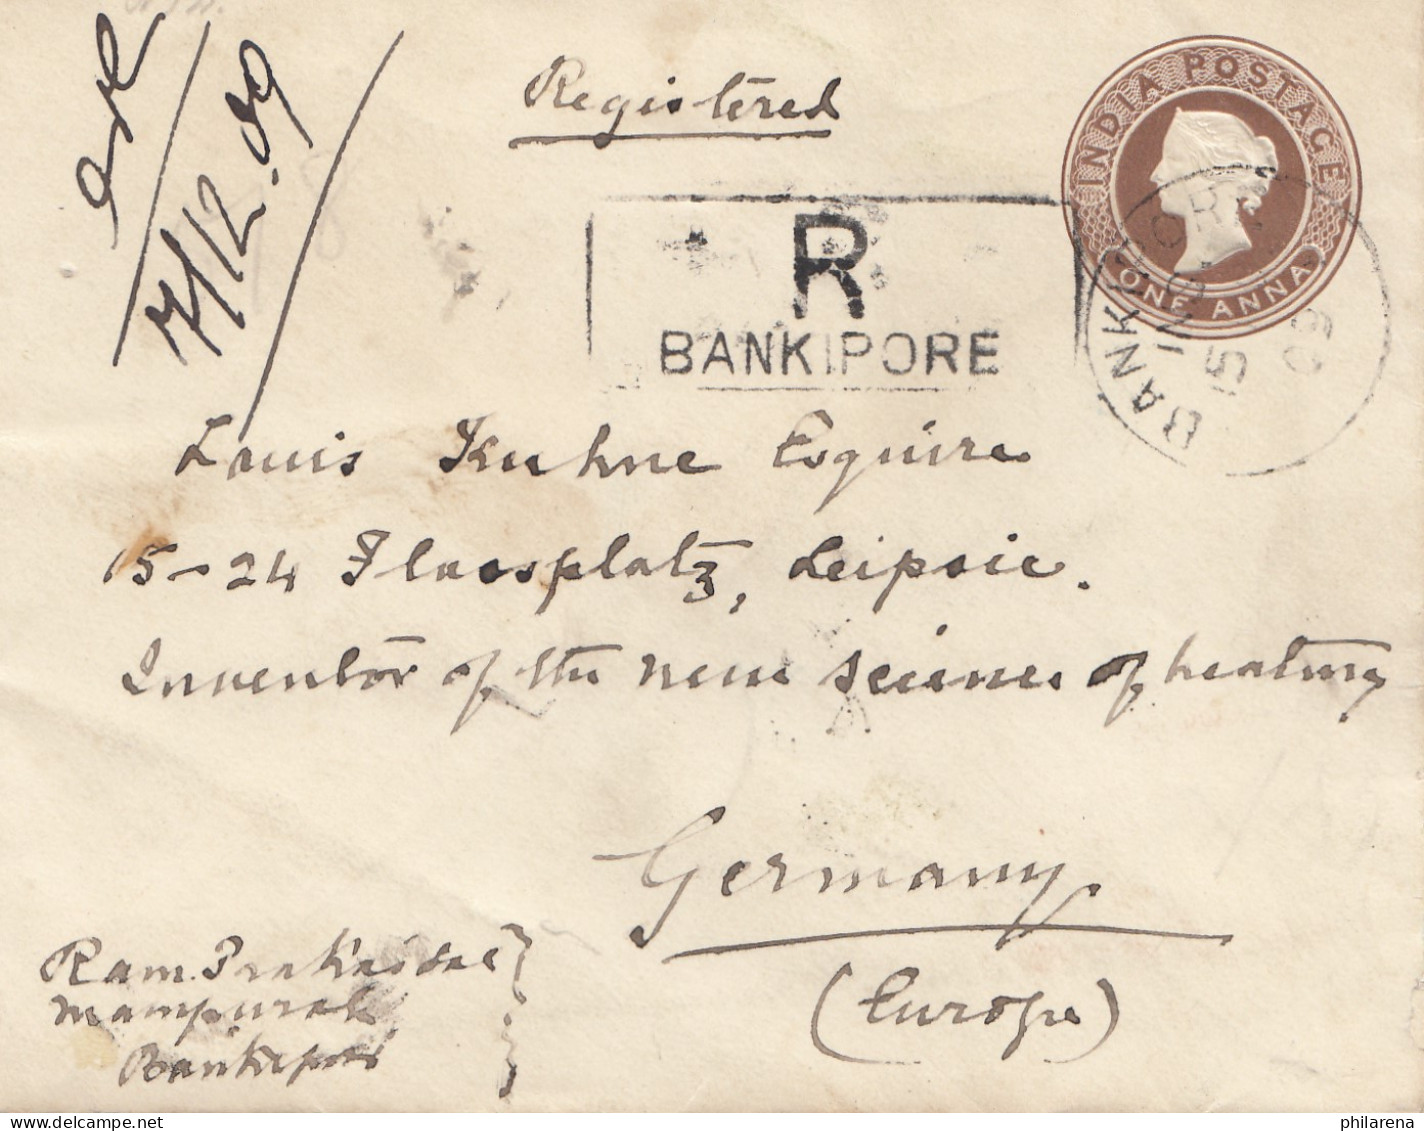 7/12.09
Registered
INDIA POSTAGE
ONE ANNA
R
BANKIPORE
BANKIPORE
15
09
Louis Kuhne Esquire
15-24 Flossplatz, Leipsic.
Inventor of the new science of healing
Germany
(Europe)
Ram
Bankipore
philarena.com